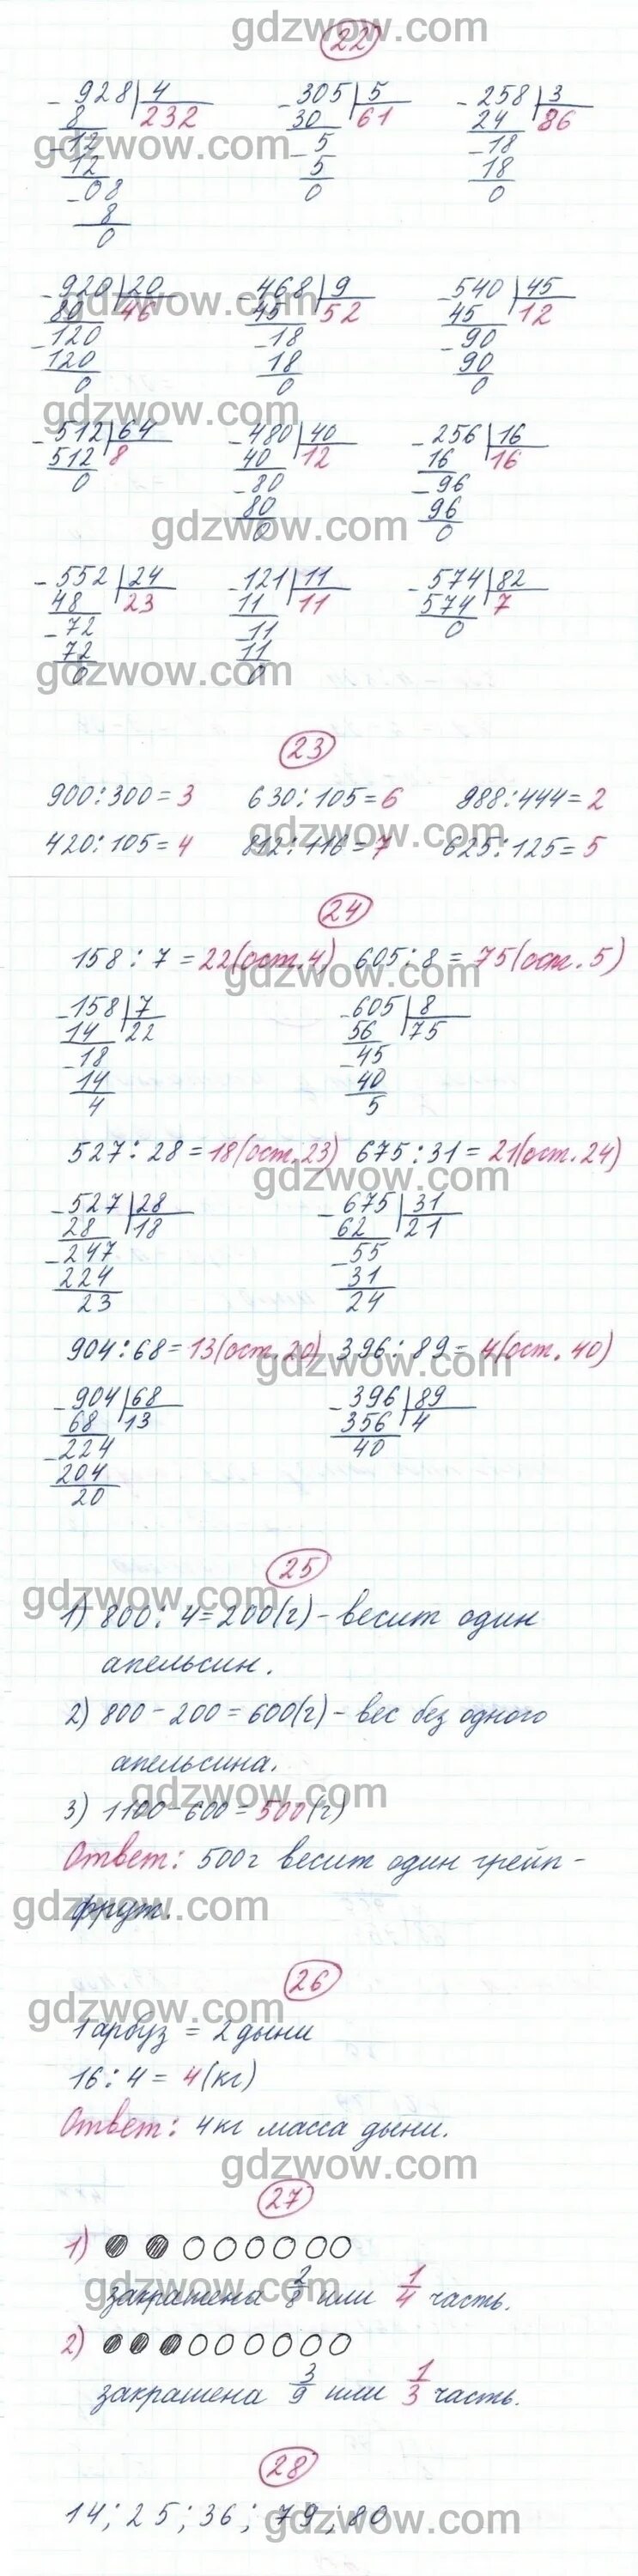 gdzwow.com
22
- 928 | 4   - 305 | 5   - 258 | 3
8   232   30   61   24   86
- 12   - 5   - 18
gdzwow.com
12   5   18
- 08   0   0
8
0
- 920 | 20   - 468 | 9   - 540 | 45
gdzwow.com
80   46   45   52   45   12
- 120   - 18   - 90
120   18   90
0   0   0
gdzwow.com
- 512 | 64   - 480 | 40   - 256 | 16
512   8   40   12   16   16
0   - 80   - 96
80   96
0   0
gdzwow.com
- 552 | 24   - 121 | 11   - 574 | 82
48   23   11   11   574   7
- 72   - 11   0
72   11
0   0
gdzwow.com
23
900 : 300 = 3   630 : 105 = 6   988 : 444 = 2
gdzwow.com
420 : 105 = 4   812 : 116 = 7   625 : 125 = 5
24
158 : 7 = 22 (ост. 4)   605 : 8 = 75 (ост. 5)
gdzwow.com
- 158 | 7   - 605 | 8
14   22   56   75
- 18   - 45
14   40
4   5
527 : 28 = 18 (ост. 23)   675 : 31 = 21 (ост. 24)
gdzwow.com
- 527 | 28   - 675 | 31
28   18   62   21
- 247   - 55
224   31
23   24
904 : 68 = 13 (ост. 20)   396 : 89 = 4 (ост. 40)
gdzwow.com
- 904 | 68   - 396 | 89
68   13   356   4
- 224   40
204
20
25
gdzwow.com
1) 800 : 4 = 200 (г) - весит один
апельсин.
2) 800 - 200 = 600 (г) - вес без одного
апельсина.
gdzwow.com
3) 1100 - 600 = 500 (г)
Ответ: 500 г весит один грейп-
фрут.
gdzwow.com
26
gdzwow.com
1 арбуз = 2 дыни
16 : 4 = 4 (кг)
Ответ: 4 кг масса дыни.
gdzwow.com
27
1)
закрашена 2/8 или 1/4 часть.
gdzwow.com
2)
закрашена 3/9 или 1/3 часть.
28
14; 25; 36; 79; 80
gdzwow.com